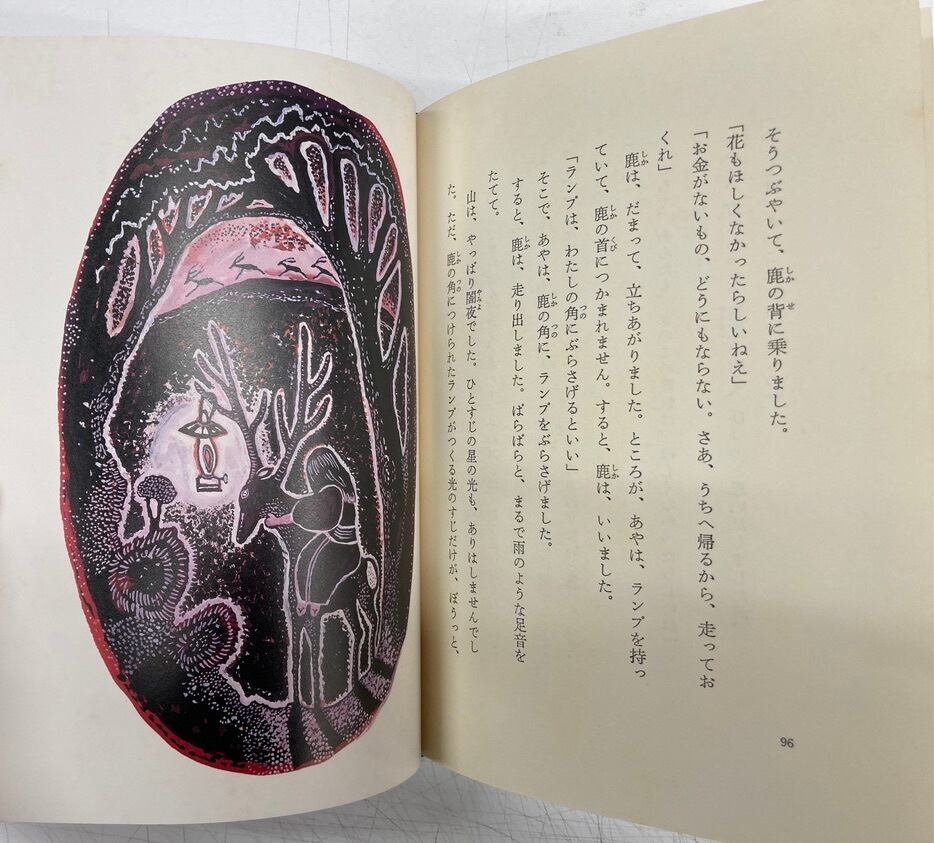 そうつぶやいて、鹿の背に乗りました。
「花もほしくなかったらしいねえ」
「お金がないもの、どうにもならない。さあ、うちへ帰るから、走ってお
くれ」
鹿は、だまって、立ちあがりました。ところが、あやは、ランプを持っ
ていて、鹿の首につかまれません。すると、鹿は、いいました。
「ランプは、わたしの角にぶらさげるといい」
そこで、あやは、鹿の角に、ランプをぶらさげました。
すると、鹿は、走り出しました。ぱらぱらと、まるで雨のような足音を
たてて。
山は、やっぱり闇夜でした。ひとすじの星の光も、ありはしませんでし
た。ただ、鹿の角につけられたランプがつくる光のすじだけが、ぼうっと、
96